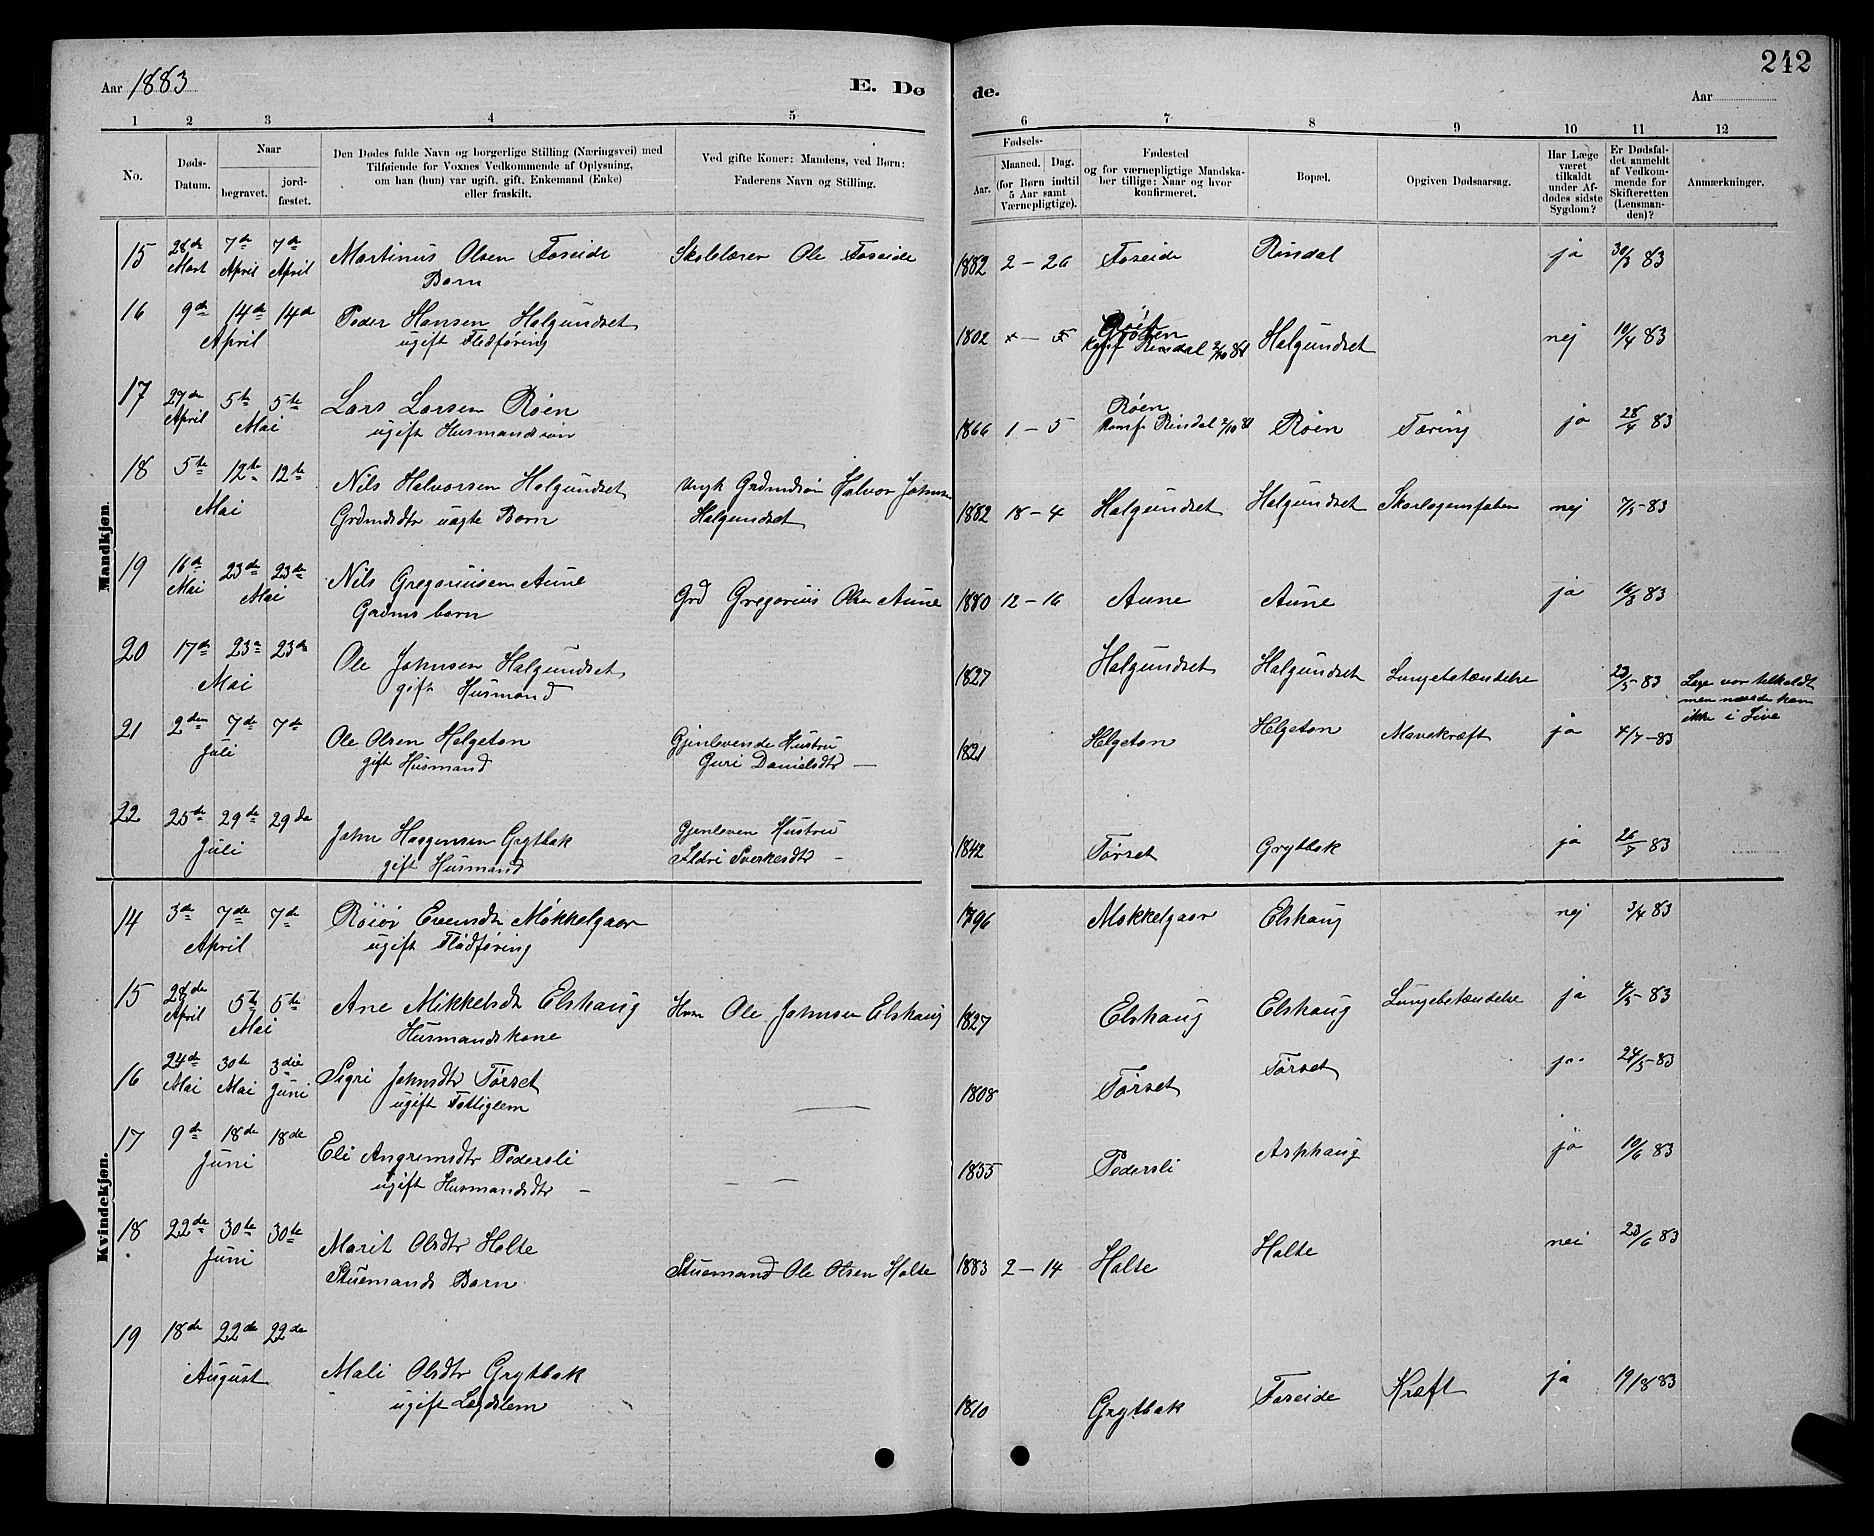 Aar 1883
E. Dø
de.
242
Aar
1 2 3 4 5 6 7 8 9 10 11 12
No.
Døds-
Datum.
Naar
begravet.
jord-
fæstet.
Den Dødes fulde Navn og borgerlige Stilling (Næringsvei) med
Tilføiende for Voxnes Vedkommende af Oplysning,
om han (hun) var ugift, gift, Enkemand (Enke)
eller fraskilt.
Ved gifte Koner: Mandens, ved Børn:
Faderens Navn og Stilling.
Fødsels-
Aar.
Maaned. Dag.
(for Børn indtil
5 Aar samt
Værnepligtige).
Fødested
og for værnepligtige Mandska-
ber tillige: Naar og hvor
konfirmeret.
Bopæl.
Opgiven Dødsaarsag.
Har Læge
været
tilkaldt
under Af-
dødes sidste
Sygdom?
Er Dødsfal-
det anmeldt
af Vedkom-
mende for
Skifteretten
(Lensman-
den)?
Anmærkninger.
Mandkjøn.
15 28de Mart 7de April 7de April Martinus Olsen Foseide Skolelærer Ole Foseide 1882 2 - 26 Foseide Rindal ja 30/3 83
Barn
16 9de 14de 14de Peder Hansen Halgundset 1802 Halgundset nej 10/4 83
April ugift Flødføring
17 27de April 5te 5te Lars Larsen Røen 1866 1 - 5 Røen Røen Tæring ja 28/4 83
Mai ugift Husmandssøn Konf. Rindal 2/10 81
18 5te 12te 12te Nils Halvorsen Halgundset Ungk Grdmdsøn Halvor Johnsen 1882 18 - 4 Halgundset Halgundset Skarlagensfeber nej 7/5 - 83
Mai Grdmdsdtr uægte Barn Halgundset
19 16de Mai 23de 23de Nils Gregoriusen Aune Grd Gregorius Olsen Aune 1880 12 - 16 Aune Aune ja 83
Mai Grdms barn
20 17de 23de 23de Ole Johnsen Halgundset 1827 Halgundset Halgundset Lungebetændelse 23/5 - 83 Læge var tilkaldt
Mai gift Husmand men naaede ham
ikke i Live
21 2den 7de 7de Ole Olsen Helgeton Gjenlevende Hustru 1821 Helgeton Helgeton Mavekræft ja 4/7 - 83
Juli gift Husmand Guri Danielsdtr -
22 25de 29de 29de John Haagensen Grytbak Gjenleven Hustru 1842 Tørset Grytbak ja 26/7 83
Juli gift Husmand Ildri Sverkesdtr -
Kvindekjøn.
14 3de 7de 7de Røiør Evensdtr Møkkelgaar 1796 Møkkelgaar Elshaug nej 3/4 83
April ugift Flødføring
15 28de April 5te 5te Ane Mikkelsdtr Elshaug Hsm Ole Johnsen Elshaug 1827 Elshaug Elshaug Lungebetændelse ja 4/5 - 83
Mai Husmandskone
16 24de Mai 30te Mai 3die Juni Sigri Johnsdtr Tørset 1808 Tørset Tørset ja 24/5 - 83
ugift Fattiglem
17 9de 18de 18de Eli Angrimsdtr Pedersli 1855 Pedersli Asphaug ja 10/6 83
Juni ugift Husmandsdtr -
18 22de 30te 30te Marit Olsdtr Holte Stuemand Ole Olsen Holte 1883 2 - 14 Holte Holte nei 23/6 83
Juni Stuemands Barn
19 18de 22de 22de Mali Olsdtr Grytbak 1810 Grytbak Foseide Kræft ja 19/8 83
August ugift Lægdslem